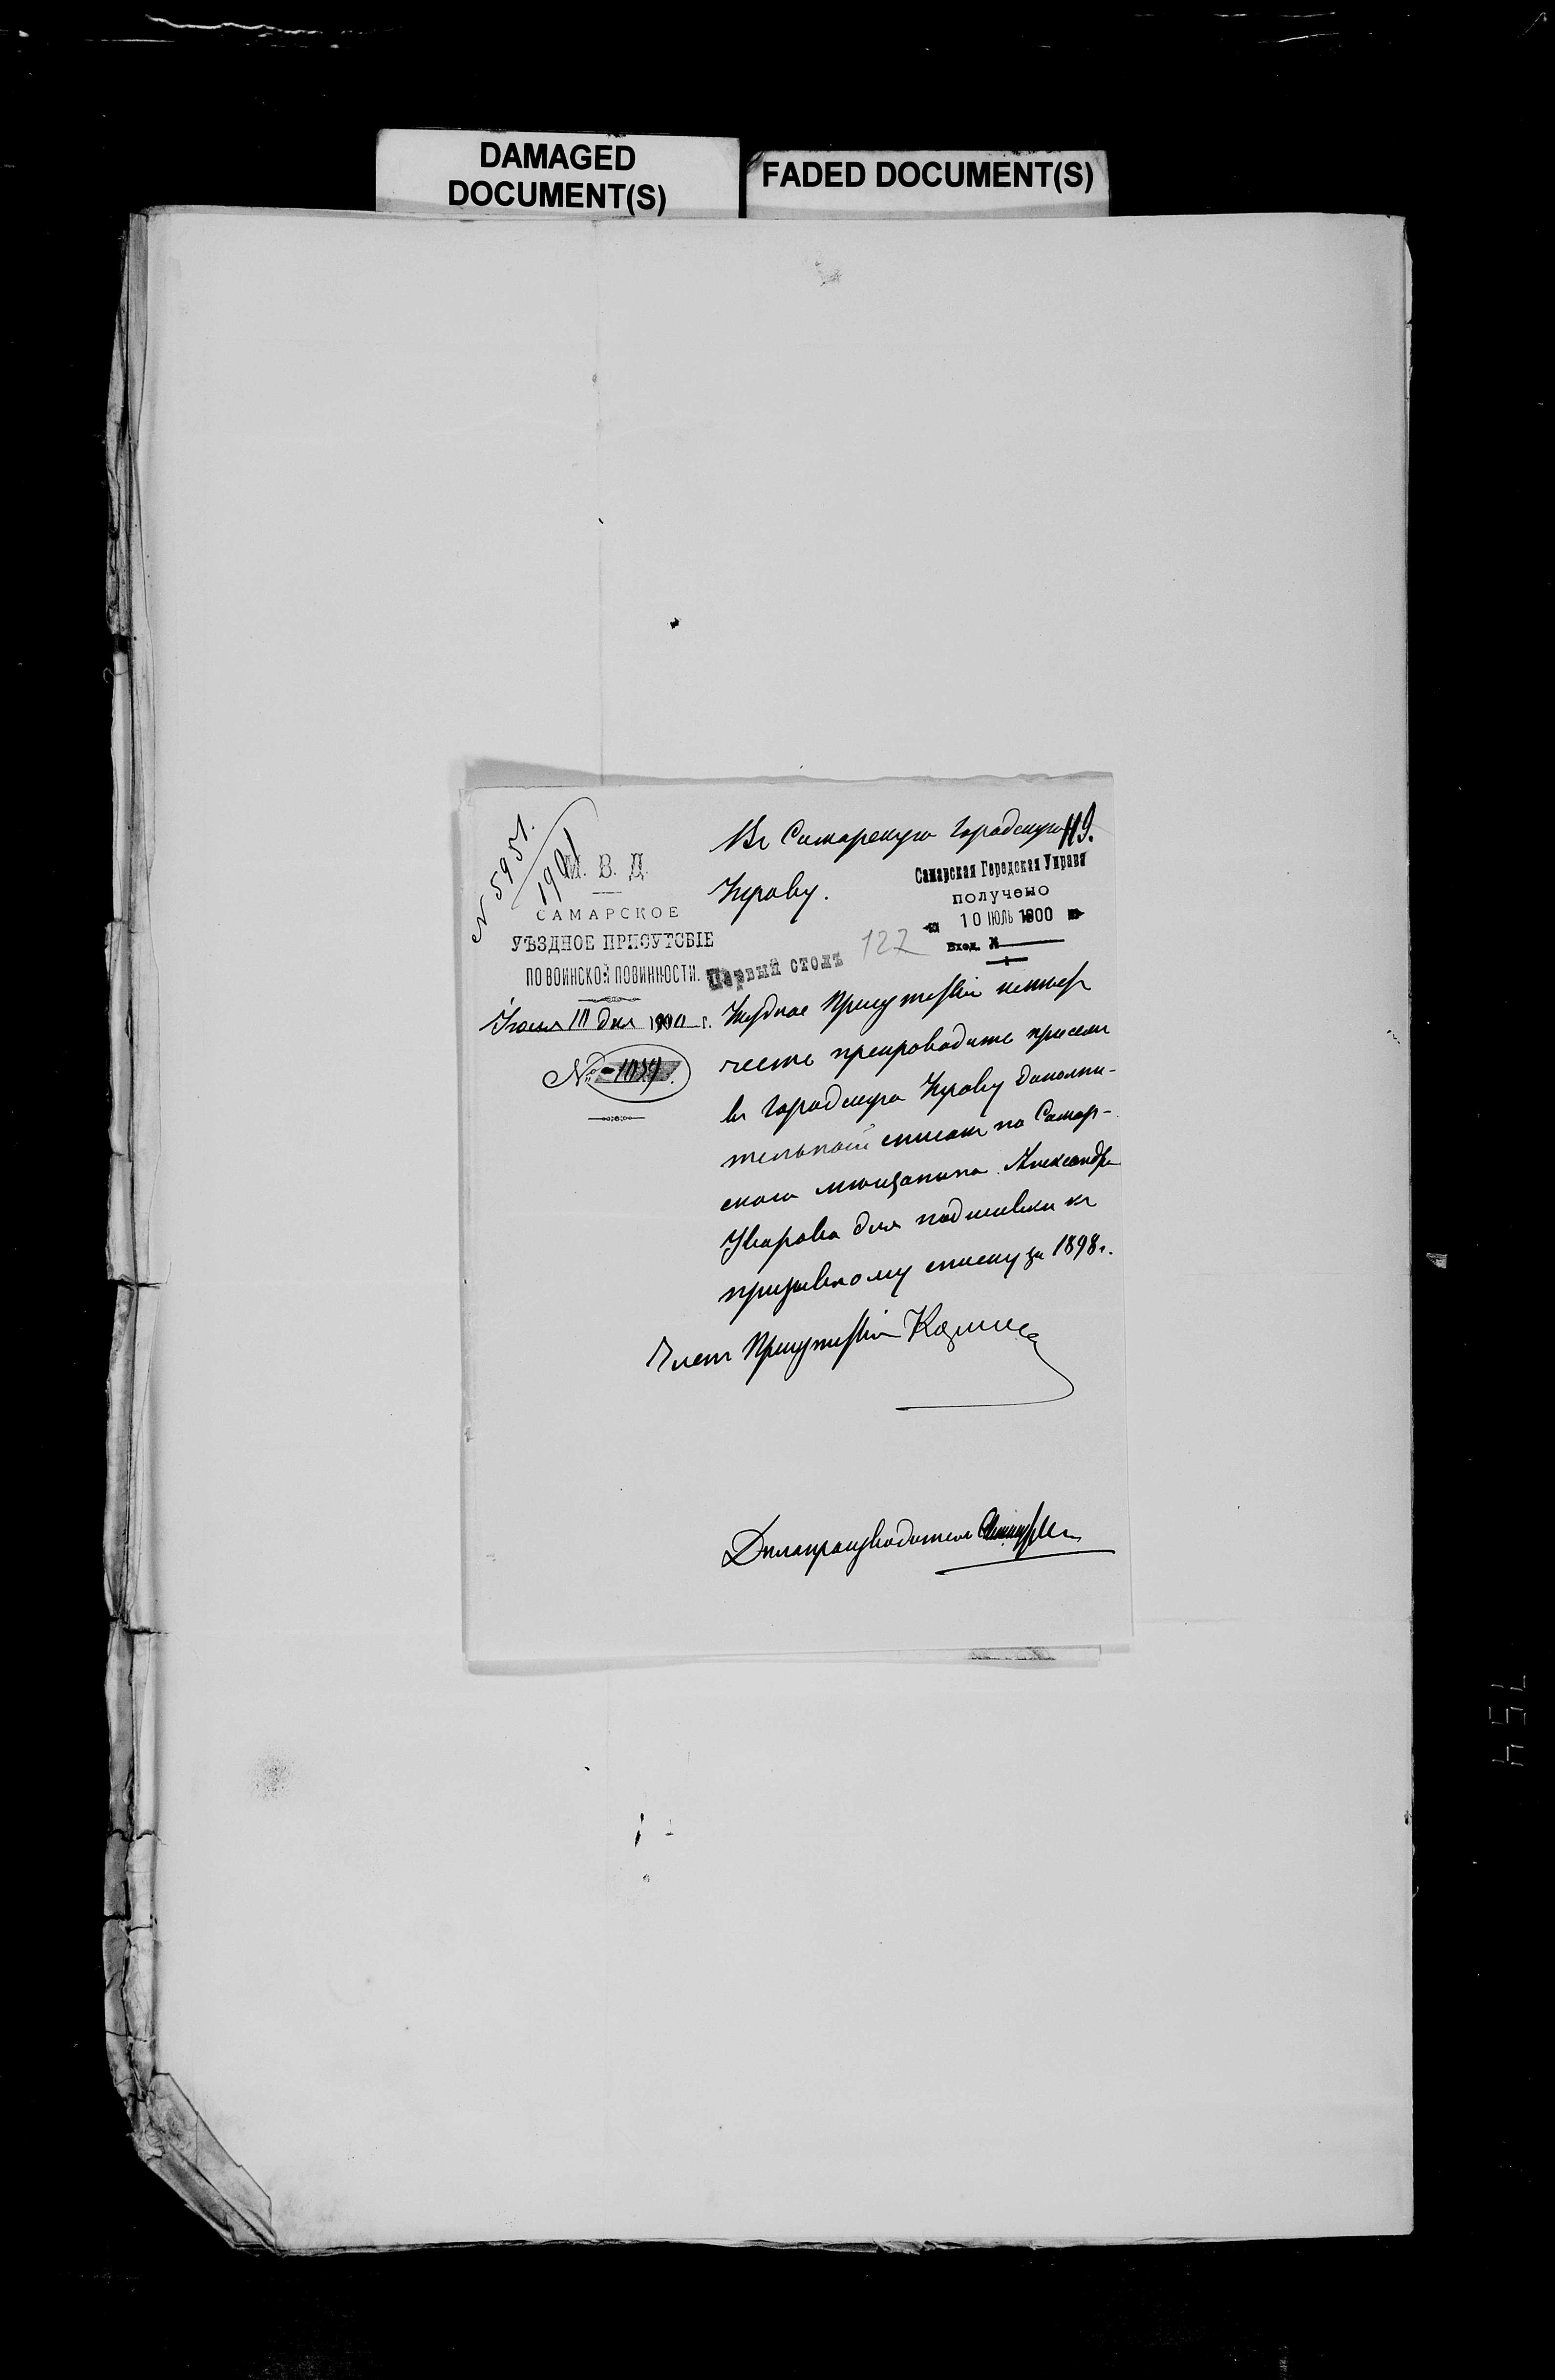 DAMAGED
DOCUMENT(S)
FADED DOCUMENT(S)
№ 5951.
1901
М. В. Д.
САМАРСКОЕ
УѢЗДНОЕ ПРИСУТСВІЕ
ПО ВОИНСКОЙ ПОВИННОСТИ.
Іюля 10 дня 1900 г.
№ 1039.
Въ Самарскую Городскую
119.
Управу.
Самарская Городская Управа
получено
10 ІЮЛЬ 1900
Вход. №
Первый столъ
122
Уѣздное Присутствіе имѣетъ
честь препроводить при семъ
въ Городскую Управу дополни-
тельный списокъ на Самар-
скаго мѣщанина Александра
Уварова для подшивки къ
призывному списку за 1898 г.
Членъ Присутствія
Дѣлопроизводитель
754